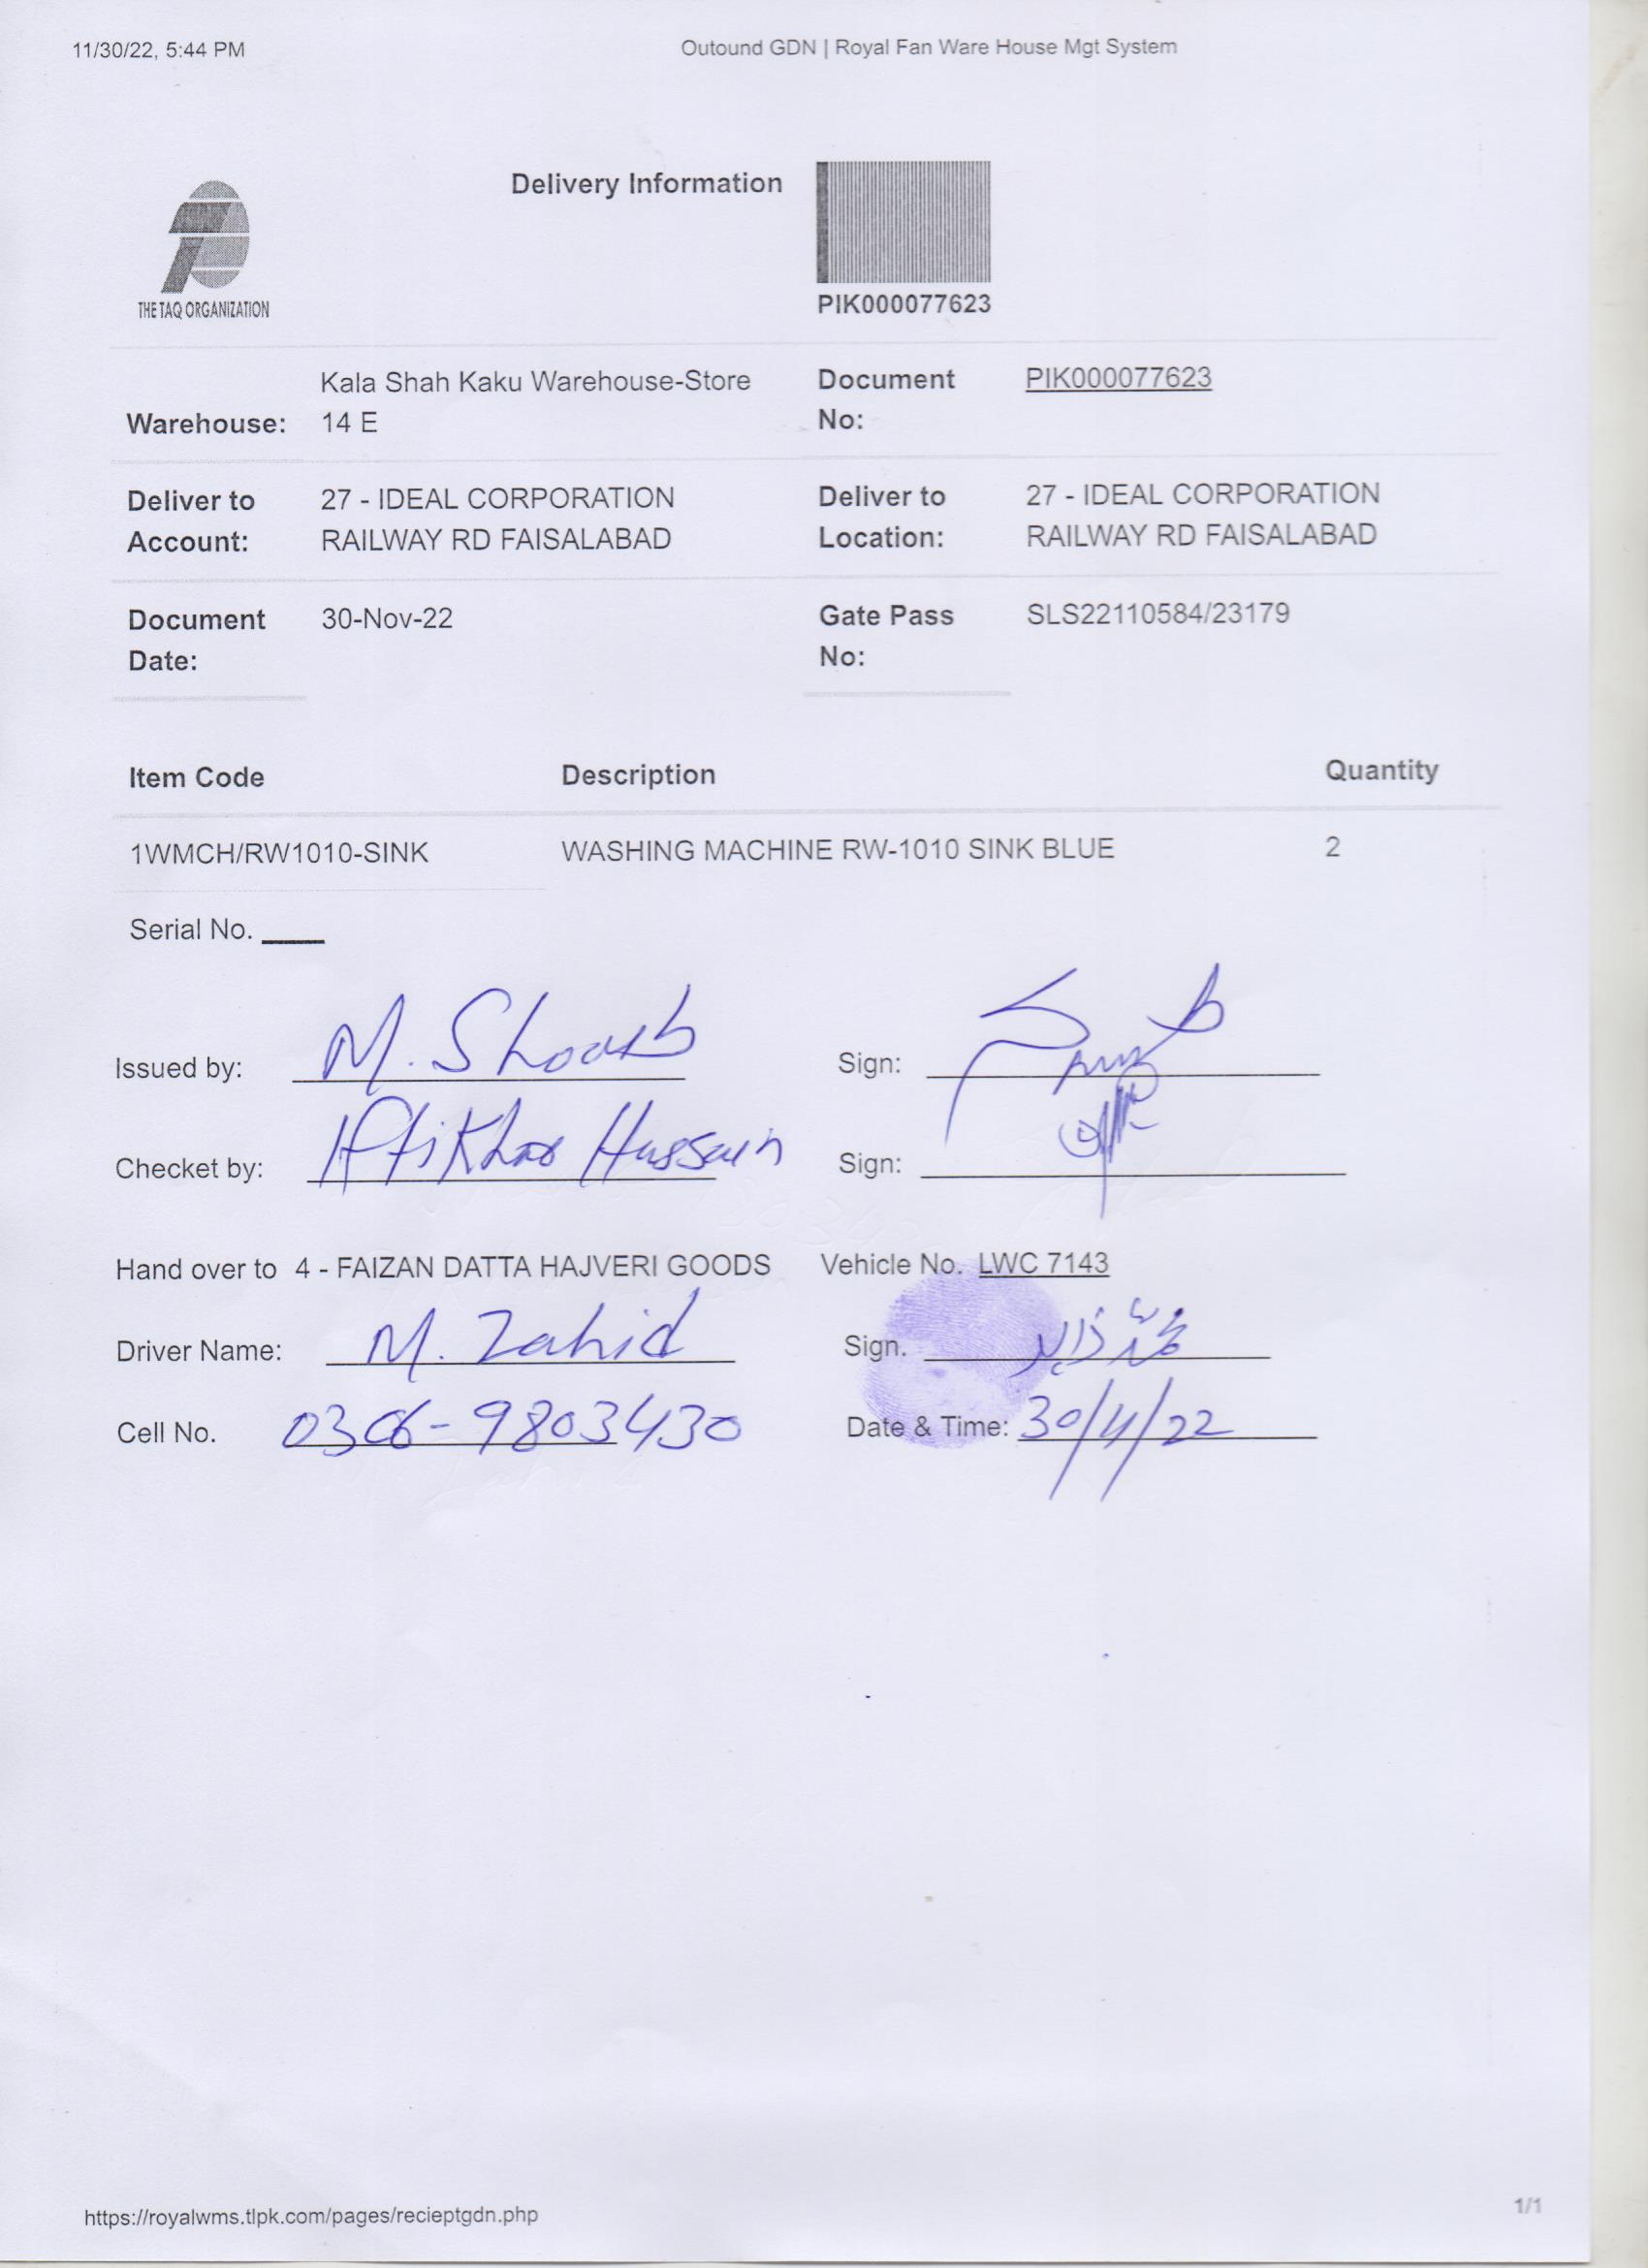 11/30/22, 5:44 PM Outound GDN | Royal Fan Ware House Mgt System
Delivery Information
THE TAQ ORGANIZATION
PIK000077623
Warehouse: Kala Shah Kaku Warehouse-Store 14 E Document No: PIK000077623
Deliver to Account: 27 - IDEAL CORPORATION RAILWAY RD FAISALABAD Deliver to Location: 27 - IDEAL CORPORATION RAILWAY RD FAISALABAD
Document Date: 30-Nov-22 Gate Pass No: SLS22110584/23179
Item Code Description Quantity
1WMCH/RW1010-SINK WASHING MACHINE RW-1010 SINK BLUE 2
Serial No. ____
Issued by: M. Shoaib Sign:
Checket by: Iftikhar Hussain Sign:
Hand over to 4 - FAIZAN DATTA HAJVERI GOODS Vehicle No. LWC 7143
Driver Name: M. Zahid Sign. محمد زاہد
Cell No. 0306-9803430 Date & Time: 30/11/22
https://royalwms.tlpk.com/pages/recieptgdn.php 1/1